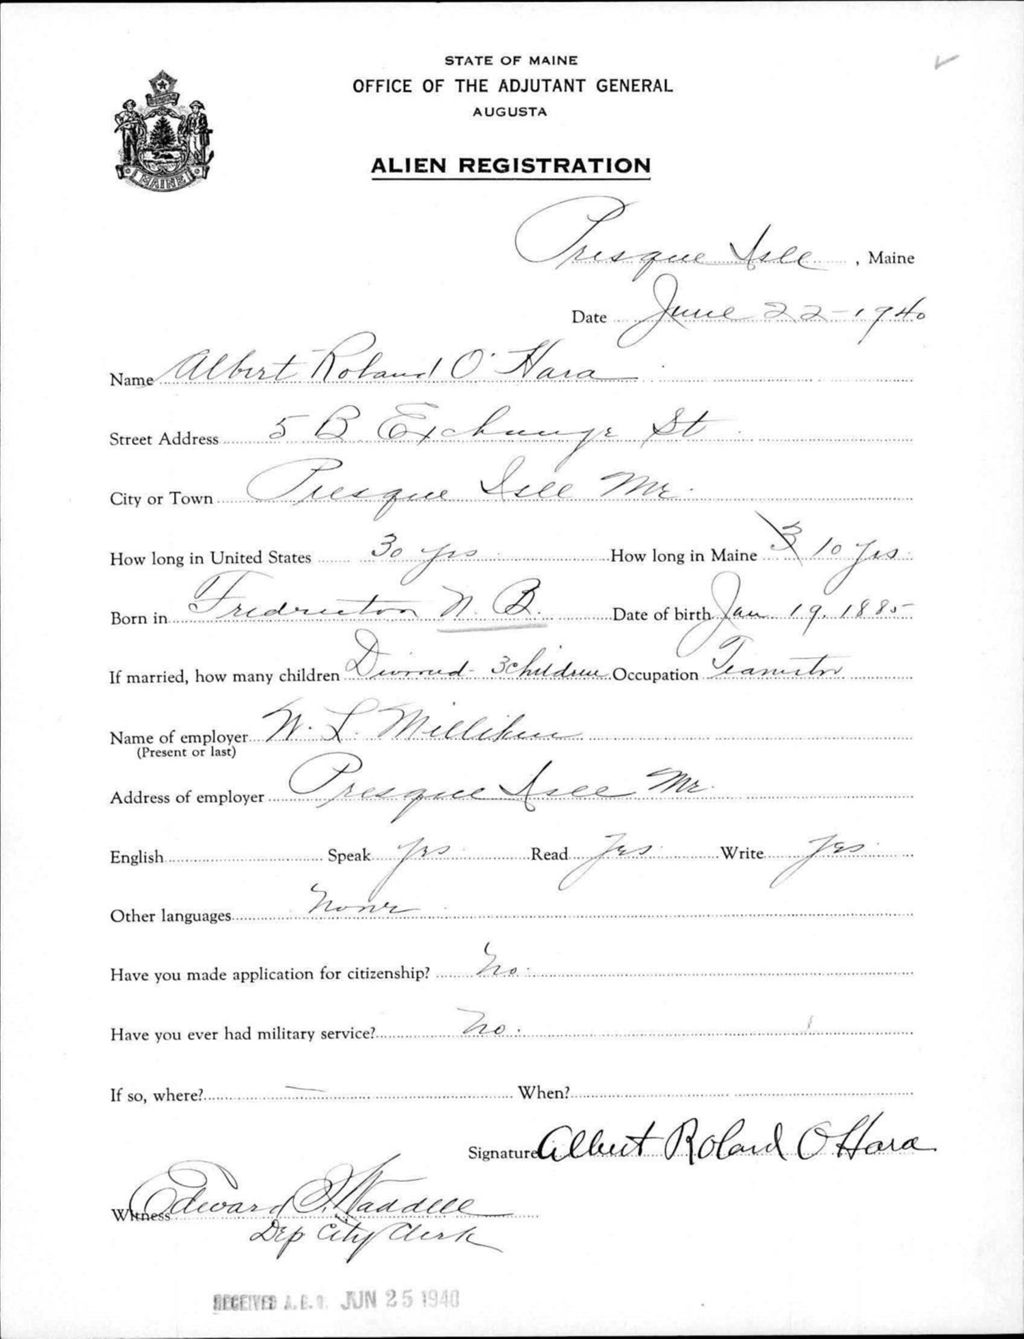 STATE OF MAINE
OFFICE OF THE ADJUTANT GENERAL
AUGUSTA
ALIEN REGISTRATION
MAINE
Presque Isle, Maine
Date June 22-1940
Name Albert Roland O'Hara
Street Address 5 B Exchange St
City or Town Presque Isle Me.
How long in United States 30 yrs How long in Maine 3 10 yrs.
Born in Fredricton N. B. Date of birth Jan. 19, 1885
If married, how many children Divorced - 3 children Occupation Teamster
Name of employer W. L. Milliken
(Present or last)
Address of employer Presque Isle Me.
English Speak yes Read Yes Write yes
Other languages None
Have you made application for citizenship? No.
Have you ever had military service? No.
If so, where? — When?
Signature Albert Roland O Hara
Witness Edward P. Waddell
Dep City Clerk
RECEIVED A.G.O. JUN 25 1940